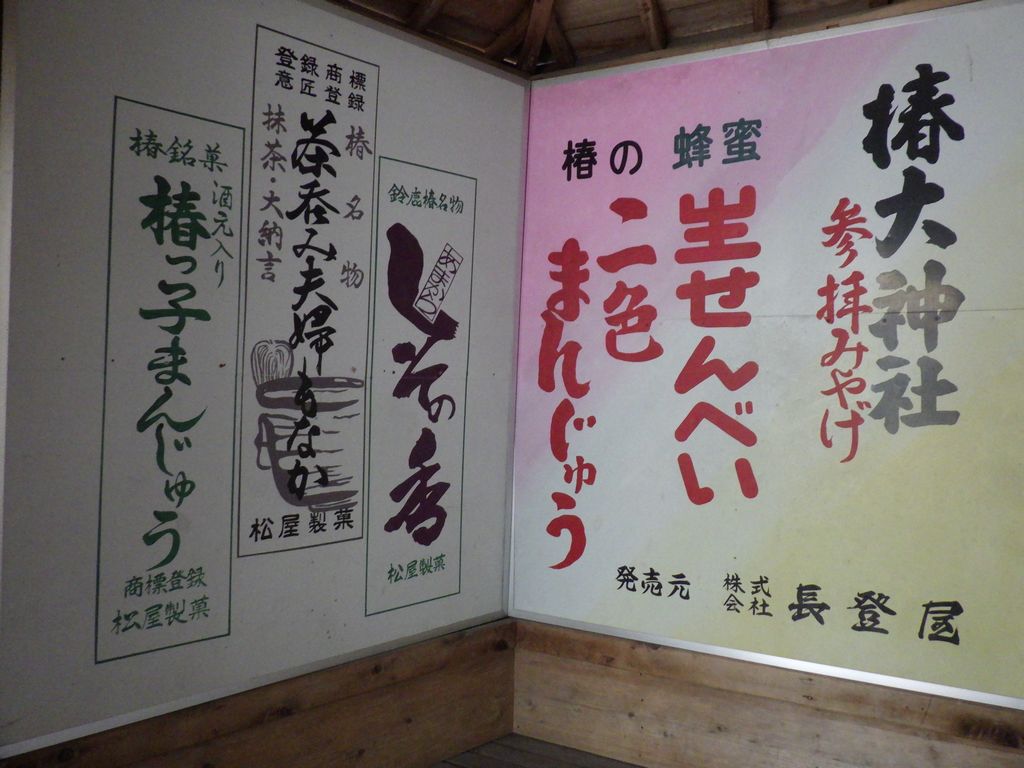 椿大神社
参拝みやげ
蜂蜜
生せんべい
椿の
二色
まんじゅう
発売元
株式会社
長登屋
鈴鹿椿名物
しその香
松屋製菓
登録商標
意匠登録
椿名物
茶呑み夫婦もなか
抹茶・大納言
松屋製菓
椿銘菓
酒元入り
椿っ子まんじゅう
商標登録
松屋製菓